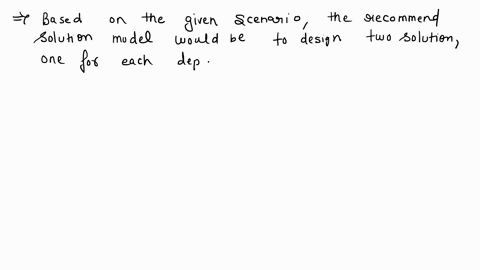 ⇒ Based on the given scenario, the recommend
solution model would be to design two solution,
one for each dep.